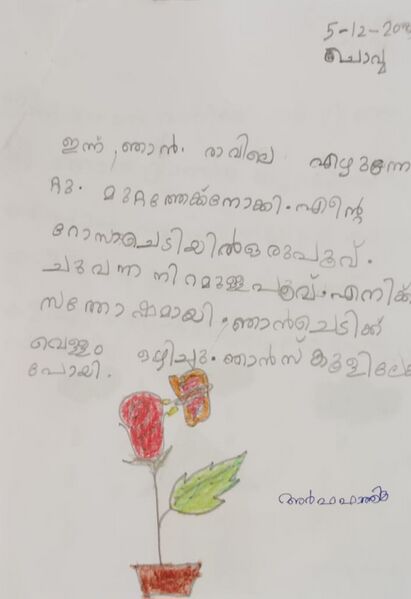 5-12-20
ചൊവ്വ
ഇന്ന് ഞാൻ. രാവിലെ എഴുന്നേ
റ്റു. മുറ്റത്തേക്ക്നോക്കി. എന്റെ
റോസാചെടിയിൽഒരുപൂവ്.
ചുവന്ന നിറമുള്ളപൂവ്. എനിക്ക്
സന്തോഷമായി. ഞാൻചെടിക്ക്
വെള്ളം ഒഴിച്ചു. ഞാൻസ്കൂളിലേ
പോയി.